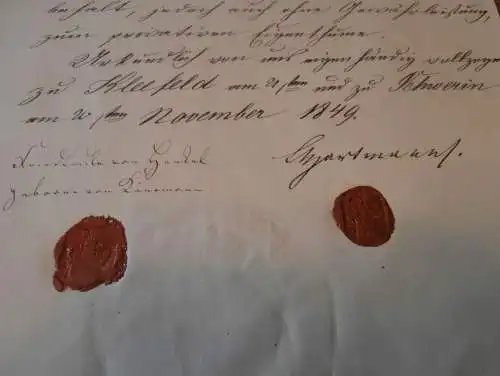 behalt, jedoch auch ohne Gewährleistung,
zum privativen Eigenthume.
Urkundlich von uns eigenhändig vollzogen
zu Kleefeld am 21sten und zu Schwerin
am 20sten November 1849.
von
geborne von